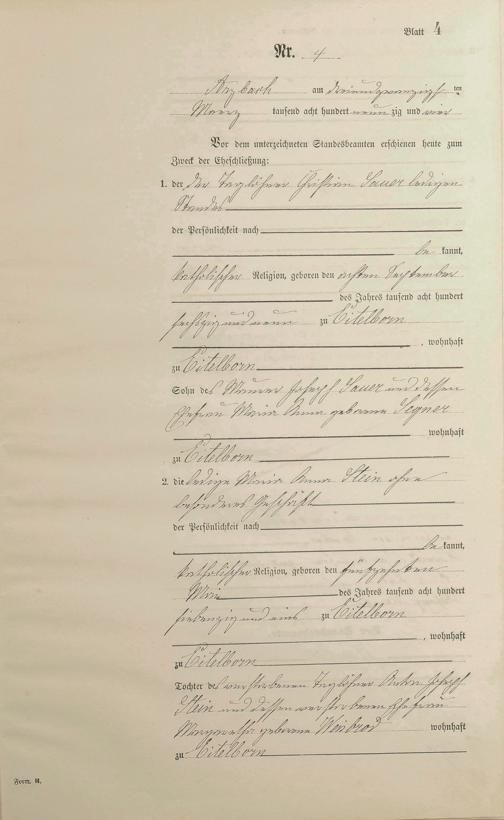 Blatt 4
Nr. 4
Arzbach am dreiundzwanzigsten
Maerz tausend acht hundert neunzig und vier
Vor dem unterzeichneten Standesbeamten erschienen heute zum
Zweck der Eheschließung:
1. der der Taglöhner Christian Sauer ledigen
Standes
der Persönlichkeit nach
be kannt,
katholischer Religion, geboren den achten September
des Jahres tausend acht hundert
sechszig und neun zu Eitelborn
, wohnhaft
zu Eitelborn
Sohn des Maurer Joseph Sauer und dessen
Ehefrau Maria Anna geborene Segner
wohnhaft
zu Eitelborn
2. die ledige Maria Anna Stein ohne
besonderes Geschäft
der Persönlichkeit nach
be kannt,
katholischer Religion, geboren den fünfzehnten
Mai des Jahres tausend acht hundert
siebenzig und eins zu Eitelborn
, wohnhaft
zu Eitelborn
Tochter des verstorbenen Taglöhner Anton Joseph
Stein und dessen verstorbenen Ehefrau
Margaretha geborene Weinbrod wohnhaft
zu Eitelborn
Form. H.